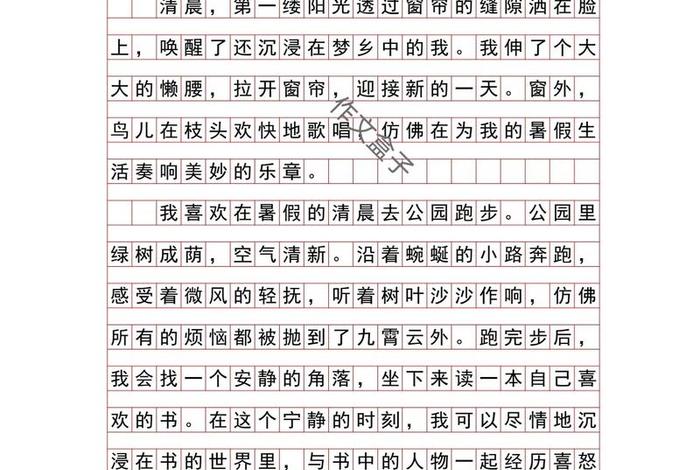 清晨，第一缕阳光透过窗帘的缝隙洒在脸
上，唤醒了还沉浸在梦乡中的我。我伸了个大
大的懒腰，拉开窗帘，迎接新的一天。窗外，
鸟儿在枝头欢快地歌唱，仿佛在为我的暑假生
活奏响美妙的乐章。
我喜欢在暑假的清晨去公园跑步。公园里
绿树成荫，空气清新。沿着蜿蜒的小路奔跑，
感受着微风的轻抚，听着树叶沙沙作响，仿佛
所有的烦恼都被抛到了九霄云外。跑完步后，
我会找一个安静的角落，坐下来读一本自己喜
欢的书。在这个宁静的时刻，我可以尽情地沉
浸在书的世界里，与书中的人物一起经历喜怒
作文盒子